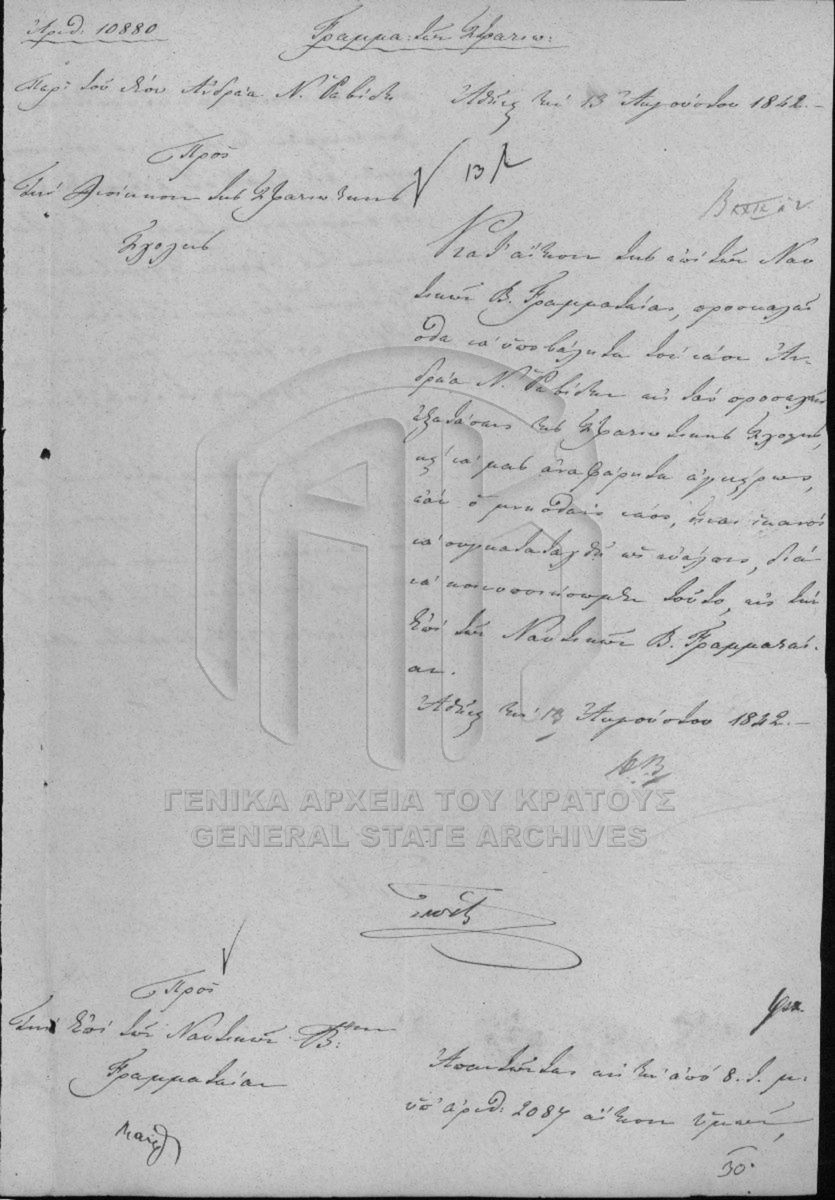 Ἀριθ: 10880
Γραμμα: τῶν Στρατιω:
Περὶ τοῦ νέου Ἀνδρέα Ν. Ῥαβίδη
Ἀθῆναι τὴν 13 Αὐγούστου 1842.—
Πρὸς
Τὴν Διοίκησιν τῆς Στρατιωτικῆς
Σχολῆς
13
Κατ' αἴτησιν τῆς ἐπὶ τῶν Ναυ
τικῶν Β. Γραμματείας, προσκαλεῖ
σθε νὰ ὑποβάλητε τὸν νέον Ἀν-
δρέα Ν. Ῥαβίδην εἰς τὰς προσεχεῖς
ἐξετάσεις τῆς Στρατιωτικῆς Σχολῆς,
καὶ νὰ μᾶς ἀναφέρητε ἐγκαίρως,
ἐὰν ὁ μνησθεὶς νέος, ἦναι ἱκανὸς
νὰ συγκαταταχθῇ ὡς εὐέλπις, διὰ
νὰ κοινοποιήσωμεν τοῦτο, εἰς τὴν
ἐπὶ τῶν Ναυτικῶν Β. Γραμματεί-
αν.
Ἀθῆναι τὴν 13 Αὐγούστου 1842.—
ΓΕΝΙΚΑ ΑΡΧΕΙΑ ΤΟΥ ΚΡΑΤΟΥΣ
GENERAL STATE ARCHIVES
Πρὸς
Τὴν ἐπὶ τῶν Ναυτικῶν Β:
Γραμματείαν
Ἀπαντῶντες εἰς τὴν ἀπὸ 8. τ. μ.
ὑπ' ἀριθ: 2087 αἴτησιν ὑμῶν,
30.